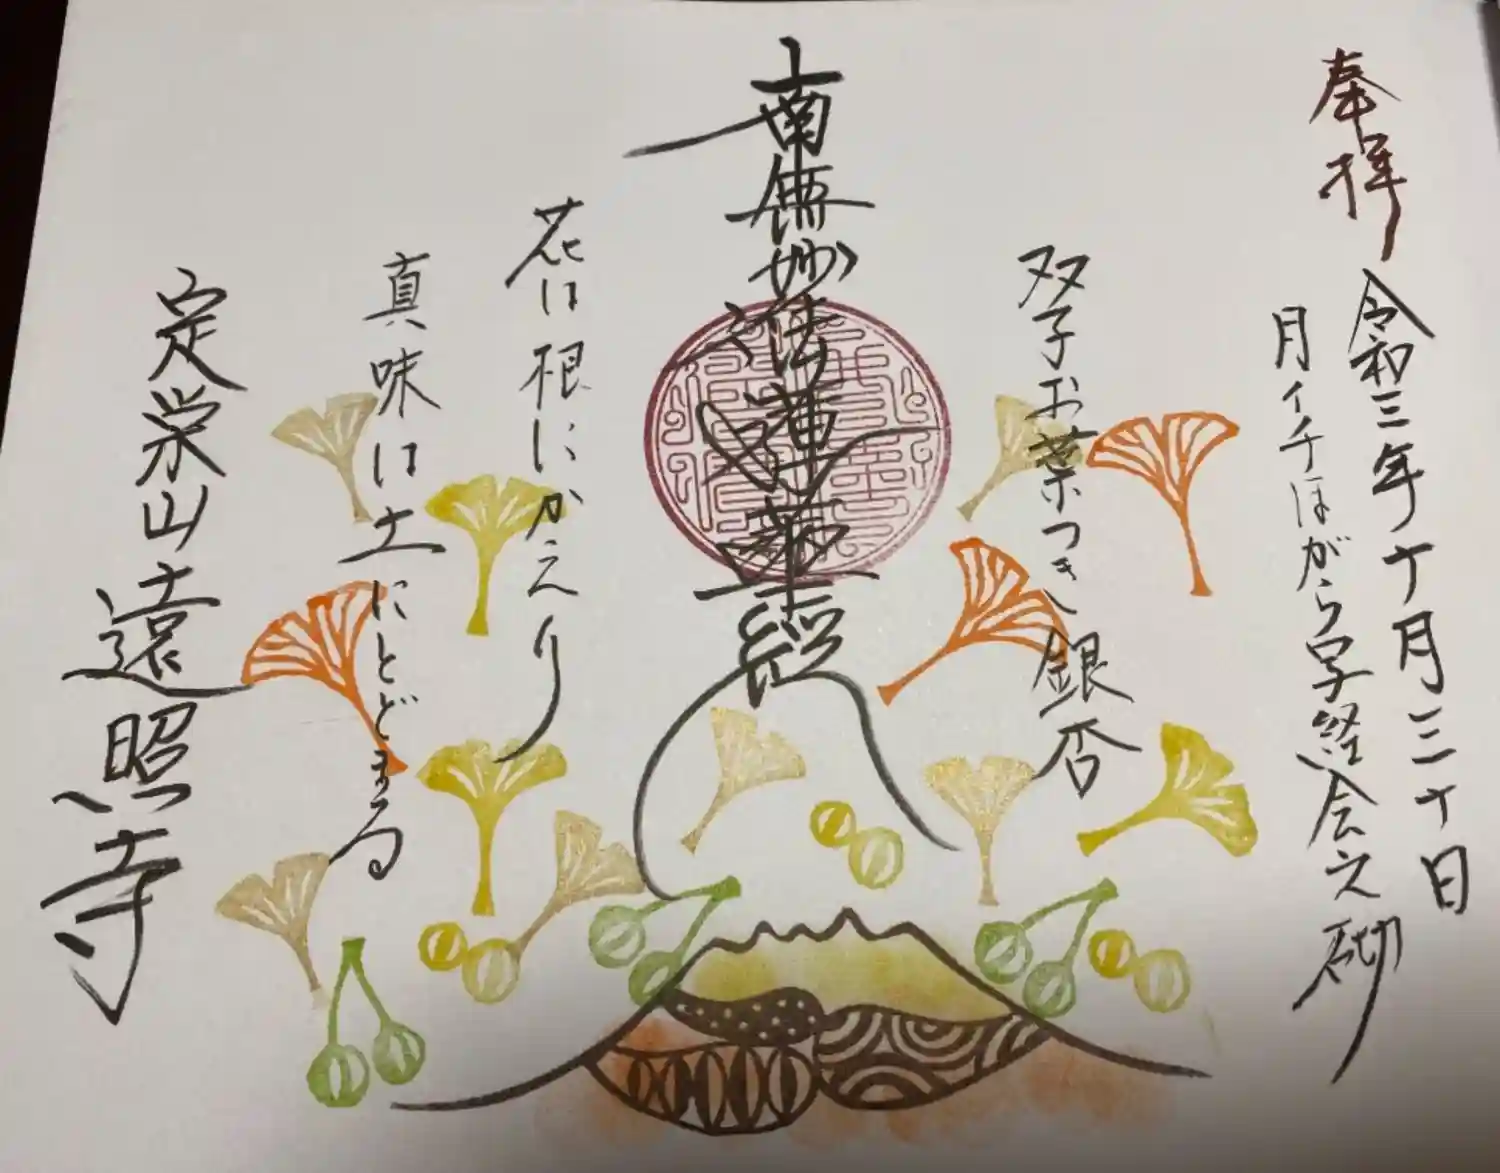 奉拝
令和三年十月三十日
月イチほがら写経会之砌
双子お葉つき銀杏
南無妙法蓮華経
花は根にかえり
真味は土にとどまる
定栄山遠照寺